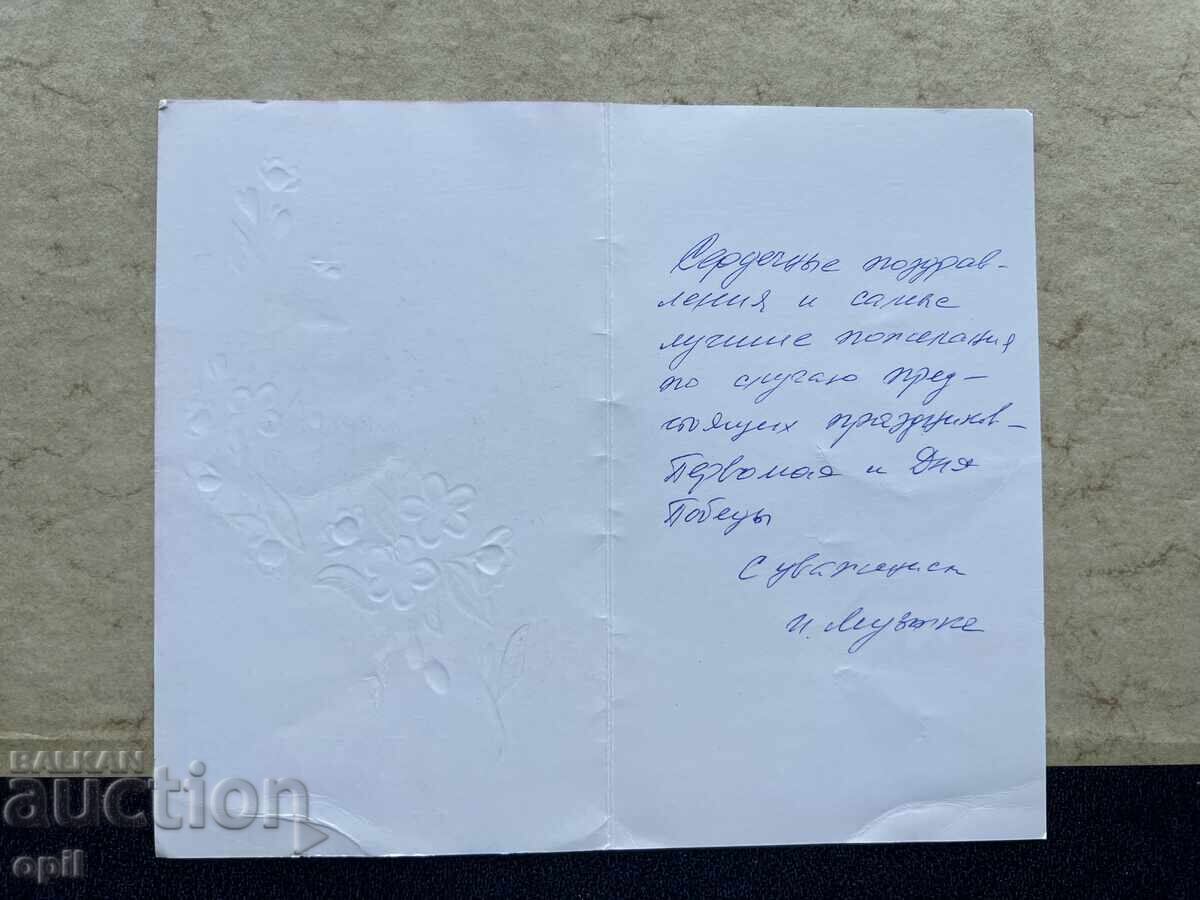 Сердечные поздрав-
ления и самые
лучшие пожелания
по случаю пред-
стоящих праздников -
Первомая и Дня
Победы
С уважением
И.
BALKAN
auction
opil